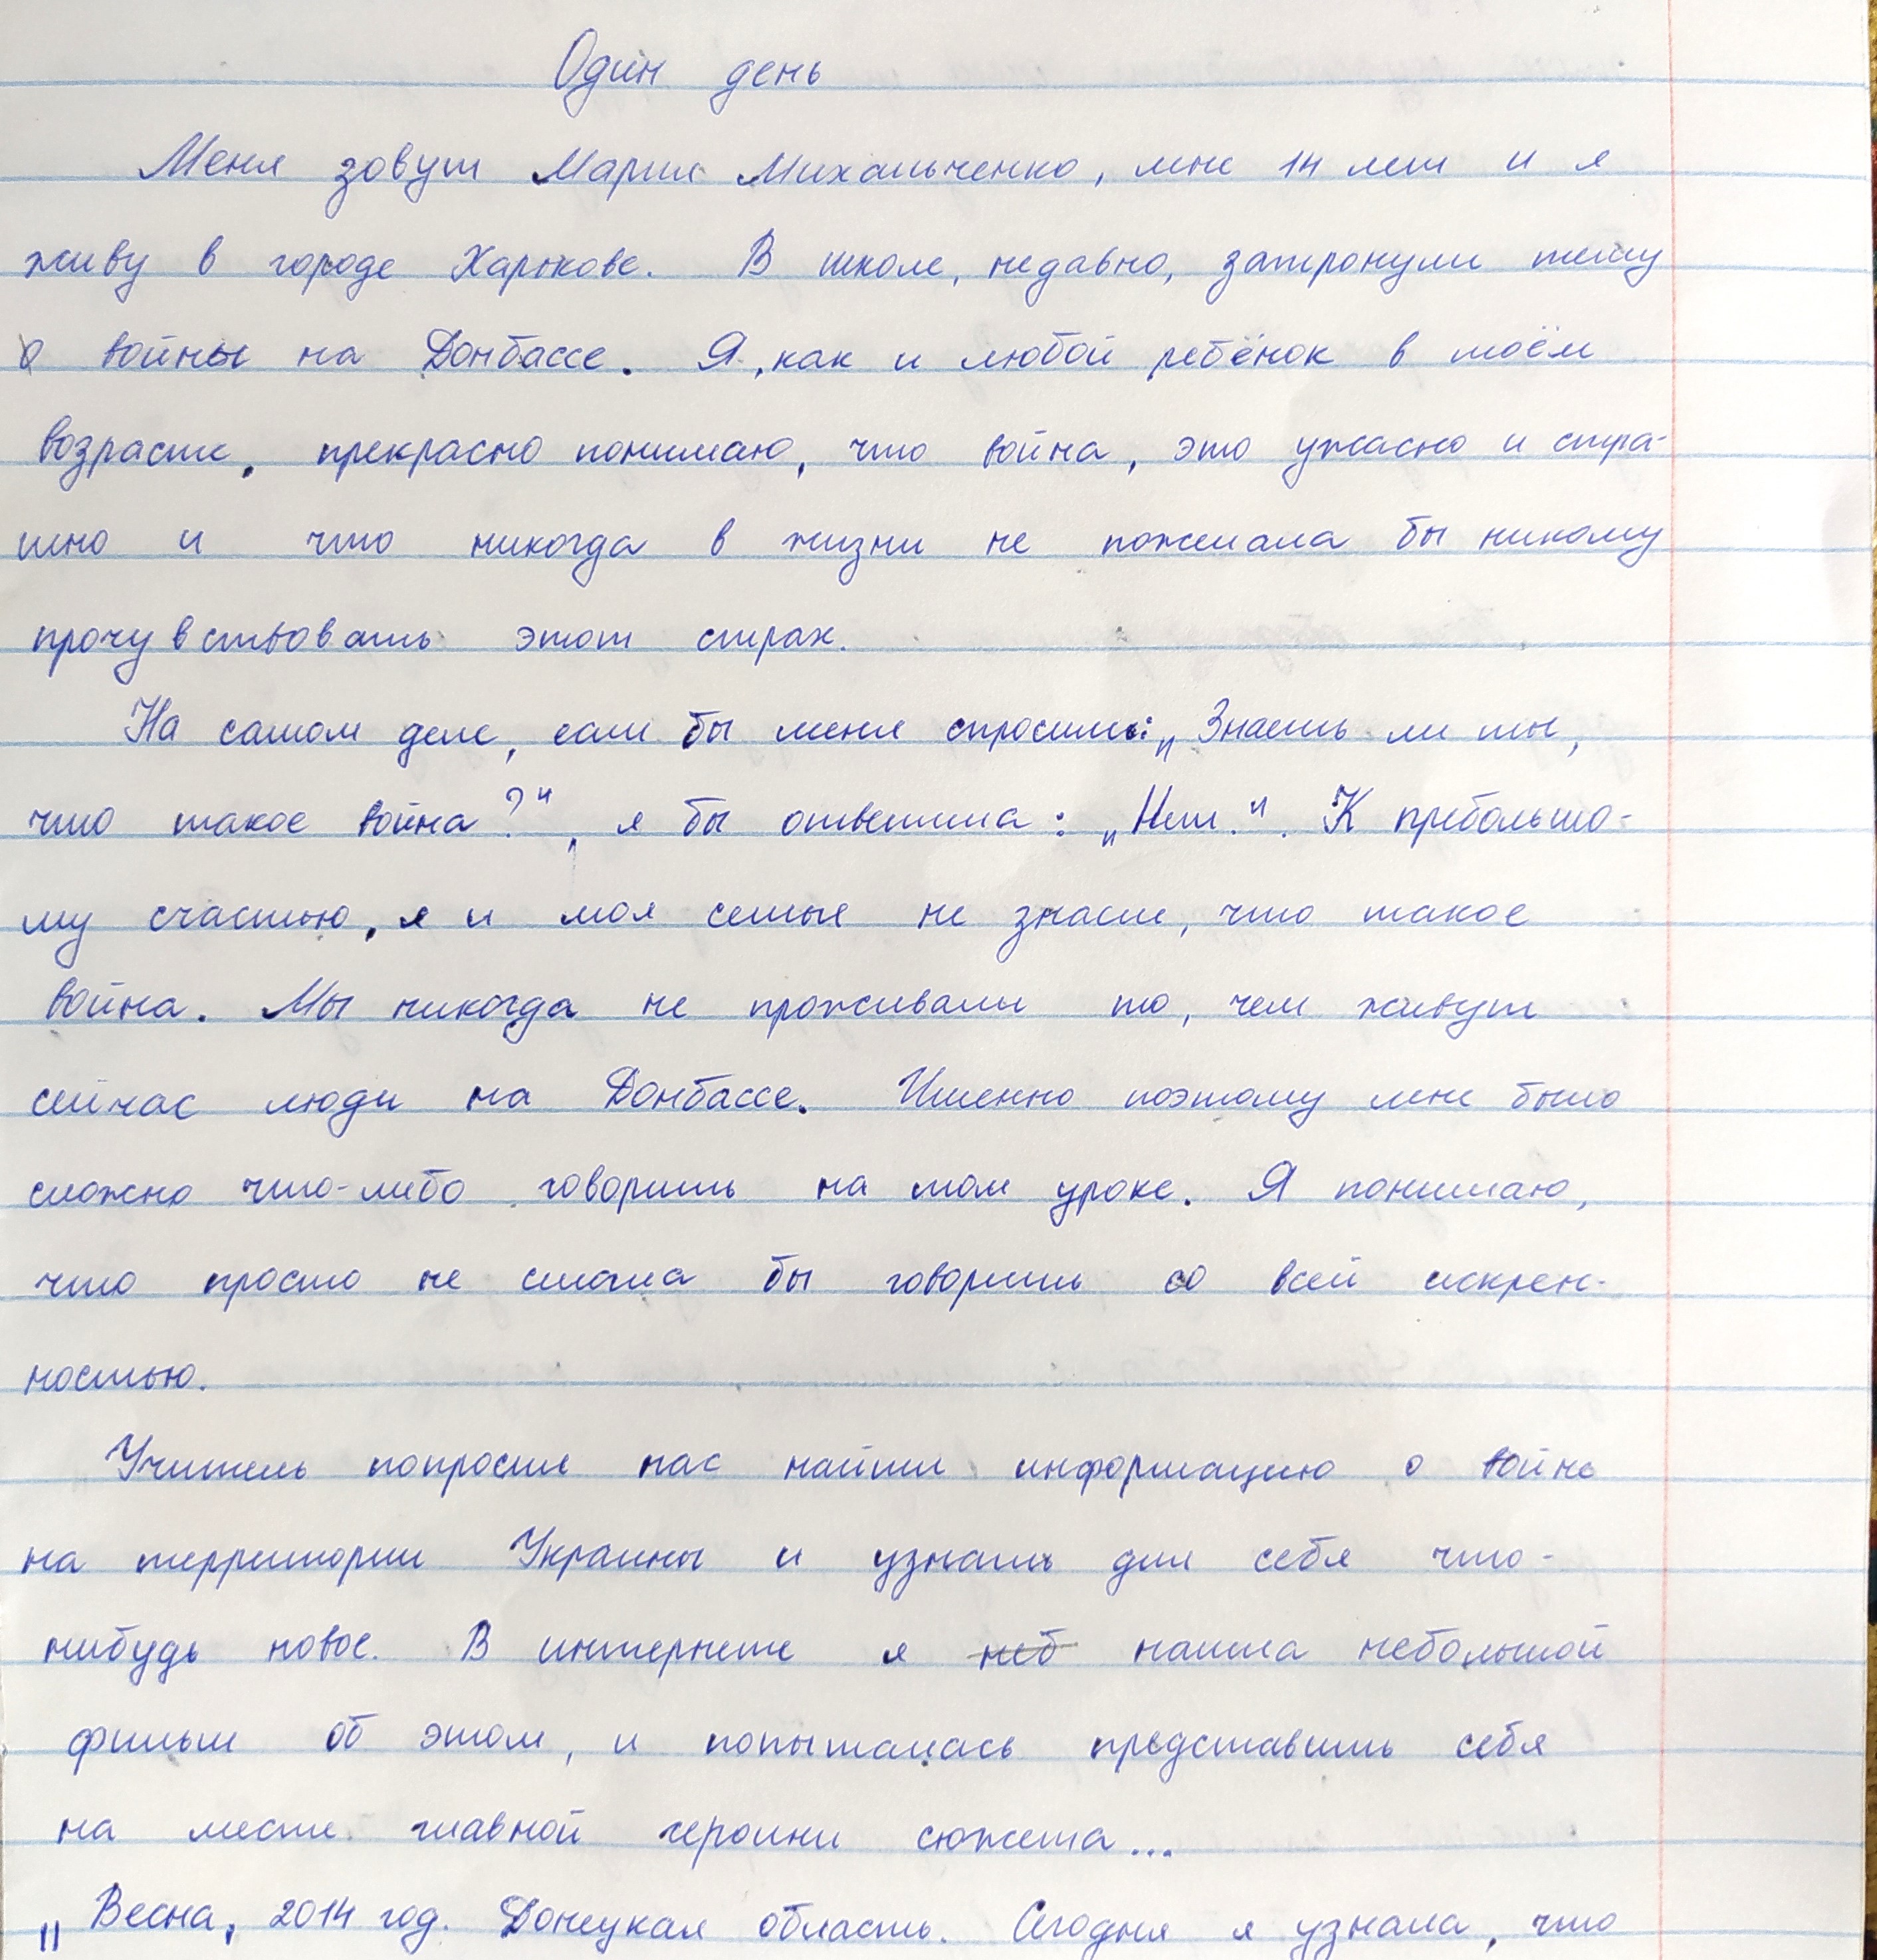 Один день
Меня зовут Мария Михальченко, мне 14 лет и я
живу в городе Харькове. В школе, недавно, затронули тему
о войны на Донбассе. Я, как и любой ребёнок в моём
возрасте, прекрасно понимаю, что война, это ужасно и стра-
шно и что никогда в жизни не пожелала бы никому
прочувствовать этот страх.
На самом деле, если бы меня спросили: „Знаешь ли ты,
что такое война?", я бы ответила: „Нет.". К пребольшо-
му счастью, я и моя семья не знаем, что такое
война. Мы никогда не проживали то, чем живут
сейчас люди на Донбассе. Именно поэтому мне было
сложно что-либо говорить на том уроке. Я понимаю,
что просто не смогла бы говорить со всей искрен-
ностью.
Учитель попросил нас найти информацию о войне
на территории Украины и узнать для себя что-
нибудь новое. В интернете я неб нашла небольшой
фильм об этом, и попыталась представить себя
на месте главной героини сюжета...
„Весна, 2014 год. Донецкая область. Сегодня я узнала, что